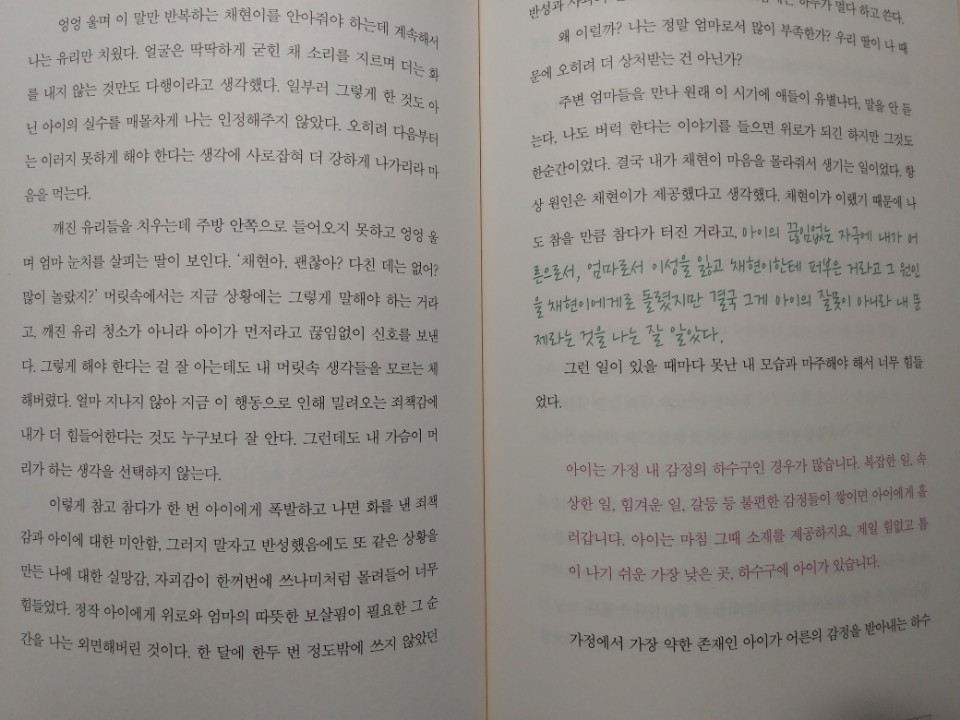 엉엉 울며 이 말만 반복하는 채현이를 안아줘야 하는데 계속해서
나는 유리만 치웠다. 얼굴은 딱딱하게 굳힌 채 소리를 지르며 더는 화
를 내지 않는 것만도 다행이라고 생각했다. 일부러 그렇게 한 것도 아
닌 아이의 실수를 매몰차게 나는 인정해주지 않았다. 오히려 다음부터
는 이러지 못하게 해야 한다는 생각에 사로잡혀 더 강하게 나가리라 마
음을 먹는다.
깨진 유리들을 치우는데 주방 안쪽으로 들어오지 못하고 엉엉 울
며 엄마 눈치를 살피는 딸이 보인다. '채현아, 괜찮아? 다친 데는 없어?
많이 놀랐지?' 머릿속에서는 지금 상황에는 그렇게 말해야 하는 거라
고, 깨진 유리 청소가 아니라 아이가 먼저라고 끊임없이 신호를 보낸
다. 그렇게 해야 한다는 걸 잘 아는데도 내 머릿속 생각들을 모르는 체
해버렸다. 얼마 지나지 않아 지금 이 행동으로 인해 밀려오는 죄책감에
내가 더 힘들어한다는 것도 누구보다 잘 안다. 그런데도 내 가슴이 머
리가 하는 생각을 선택하지 않는다.
이렇게 참고 참다가 한 번 아이에게 폭발하고 나면 화를 낸 죄책
감과 아이에 대한 미안함, 그러지 말자고 반성했음에도 또 같은 상황을
만든 나에 대한 실망감, 자괴감이 한꺼번에 쓰나미처럼 몰려들어 너무
힘들었다. 정작 아이에게 위로와 엄마의 따뜻한 보살핌이 필요한 그 순
간을 나는 외면해버린 것이다. 한 달에 한두 번 정도밖에 쓰지 않았던
반성과 하루가 멀다 하고 쓴다.
왜 이럴까? 나는 정말 엄마로서 많이 부족한가? 우리 딸이 나 때
문에 오히려 더 상처받는 건 아닌가?
주변 엄마들을 만나 원래 이 시기에 애들이 유별나다, 말을 안 듣
는다, 나도 버럭 한다는 이야기를 들으면 위로가 되긴 하지만 그것도
한순간이었다. 결국 내가 채현이 마음을 몰라줘서 생기는 일이었다. 항
상 원인은 채현이가 제공했다고 생각했다. 채현이가 이랬기 때문에 나
도 참을 만큼 참다가 터진 거라고, 아이의 끊임없는 자극에 내가 어
른으로서, 엄마로서 이성을 잃고 채현이한테 퍼부은 거라고 그 원인
을 채현이에게로 돌렸지만 결국 그게 아이의 잘못이 아니라 내 문
제라는 것을 나는 잘 알았다.
그런 일이 있을 때마다 못난 내 모습과 마주해야 해서 너무 힘들
었다.
아이는 가정 내 감정의 하수구인 경우가 많습니다. 복잡한 일, 속
상한 일, 힘겨운 일, 갈등 등 불편한 감정들이 쌓이면 아이에게 흘
러갑니다. 아이는 마침 그때 소재를 제공하지요. 제일 힘없고 틈
이 나기 쉬운 가장 낮은 곳, 하수구에 아이가 있습니다.
가정에서 가장 약한 존재인 아이가 어른의 감정을 받아내는 하수